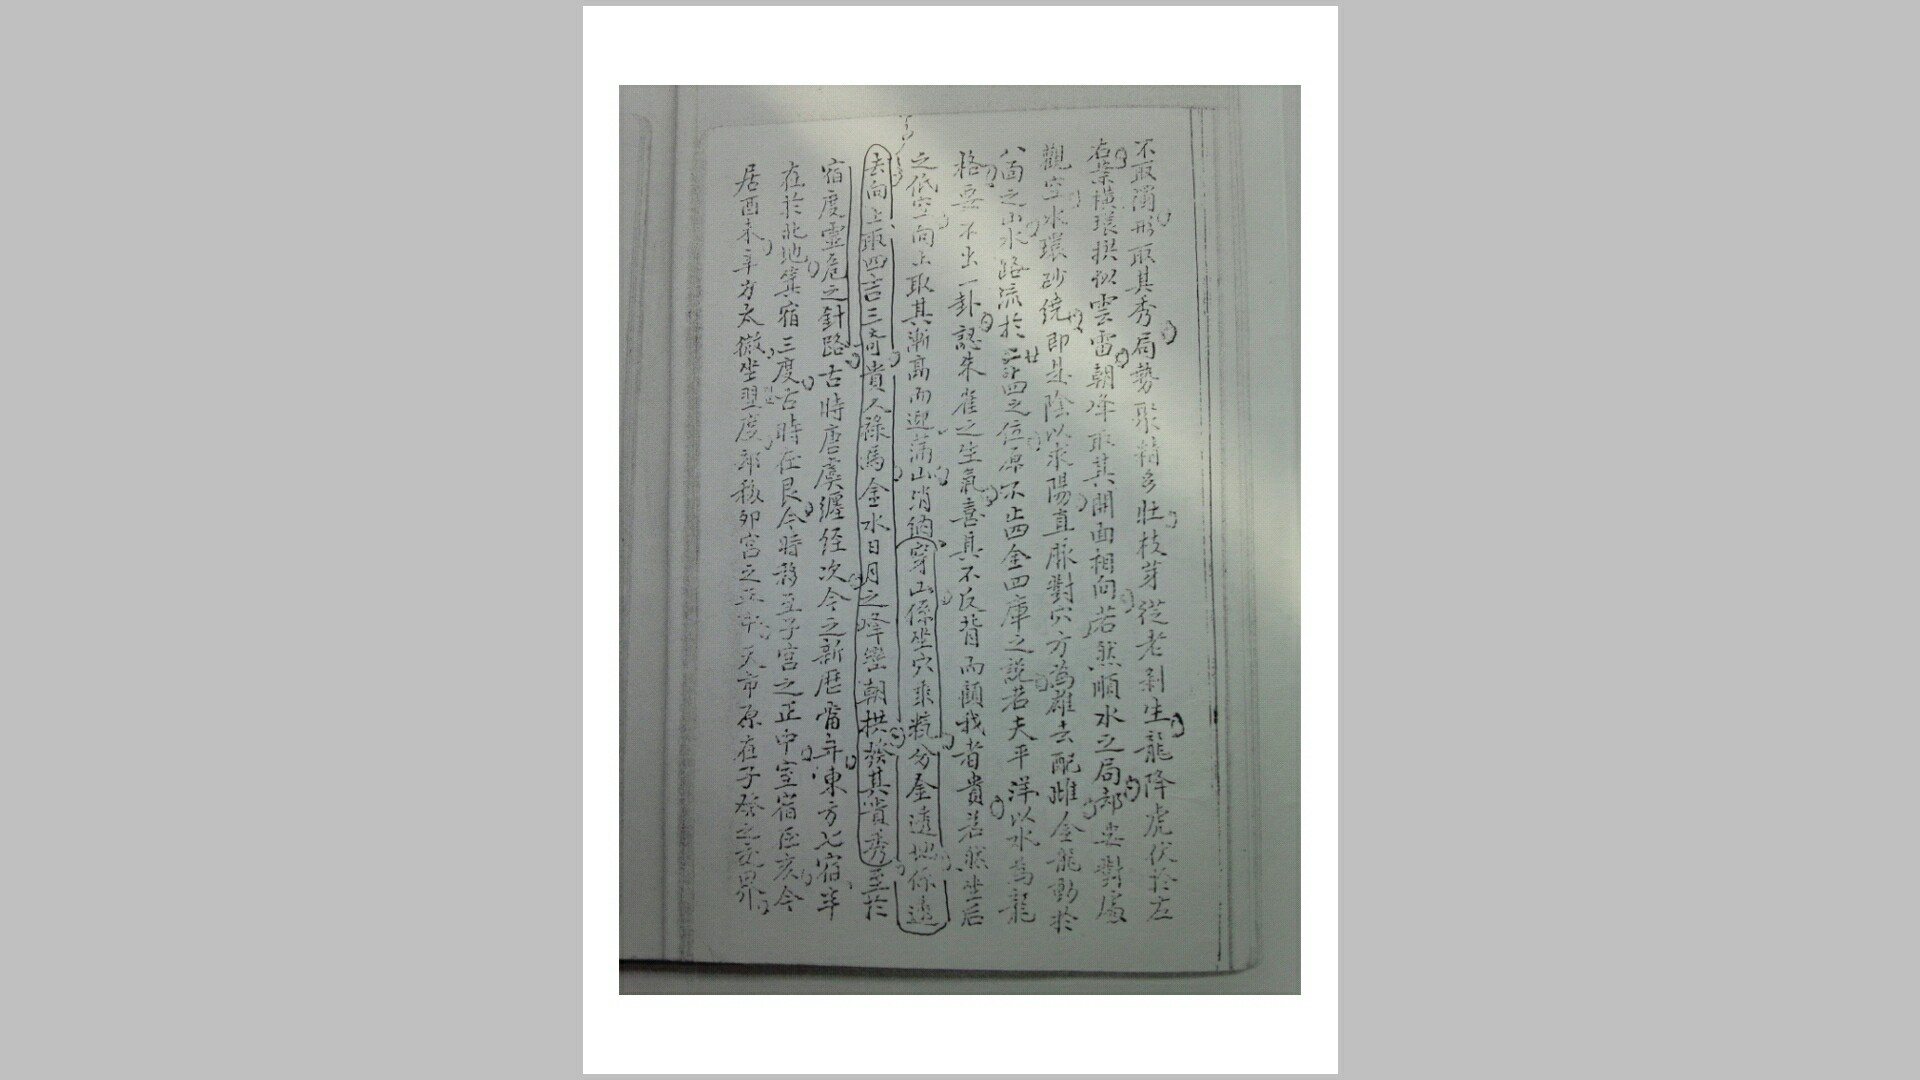 不取濁形取其秀局勢聚精多壯枝芽從老剥生龍降虎伏於左
右業橫環拱似雲雷朝峰取其開面相向若然順水之局部要對
觀空水環砂绕即是陰以求陽直脉對穴方為雄去配雌金龍動於
八面之山水路流於廿四之位原不止四金四庫之說若夫平洋以水為龍
格要不出一卦認朱雀之生氣喜其不反背而顧我者貴若然坐后
之低空向上取其漸高而迎蒲山消納穿山係坐穴乘氣分金透地係透
去向上取四吉三奇貴人祿馬金水日月之峰巒朝拱發其貴秀至於
宿度靈危之針路古時唐虞纏经次今之新歷甯年東方七宿半
在於北地箕宿三度古時在艮今時移至子宮之正中室宿臣亥今
居酉未辛方太微坐翌度部移卯宮之正中天市原在子癸之交界